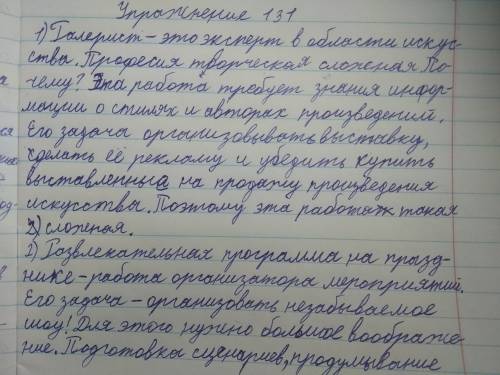 Упражнение 131
1) Галерист - это эксперт в области искус-
ства. Професия творческая сложеная По-
чему? Эта работа требует знания инфор-
мации о стилях и авторах произведений.
Его задача организовывать выставку,
сделать её рекламу и убедить купить
выставленные на продажу произведения
искусства. Поэтому эта работа такая
сложеная.
2) Развлекательная программа на празд-
нике - работа организатора мероприятий.
Его задача - организовать незабываемое
шоу! Для этого нужно большое воображе-
ние. Подготовка сценариев, продумывание